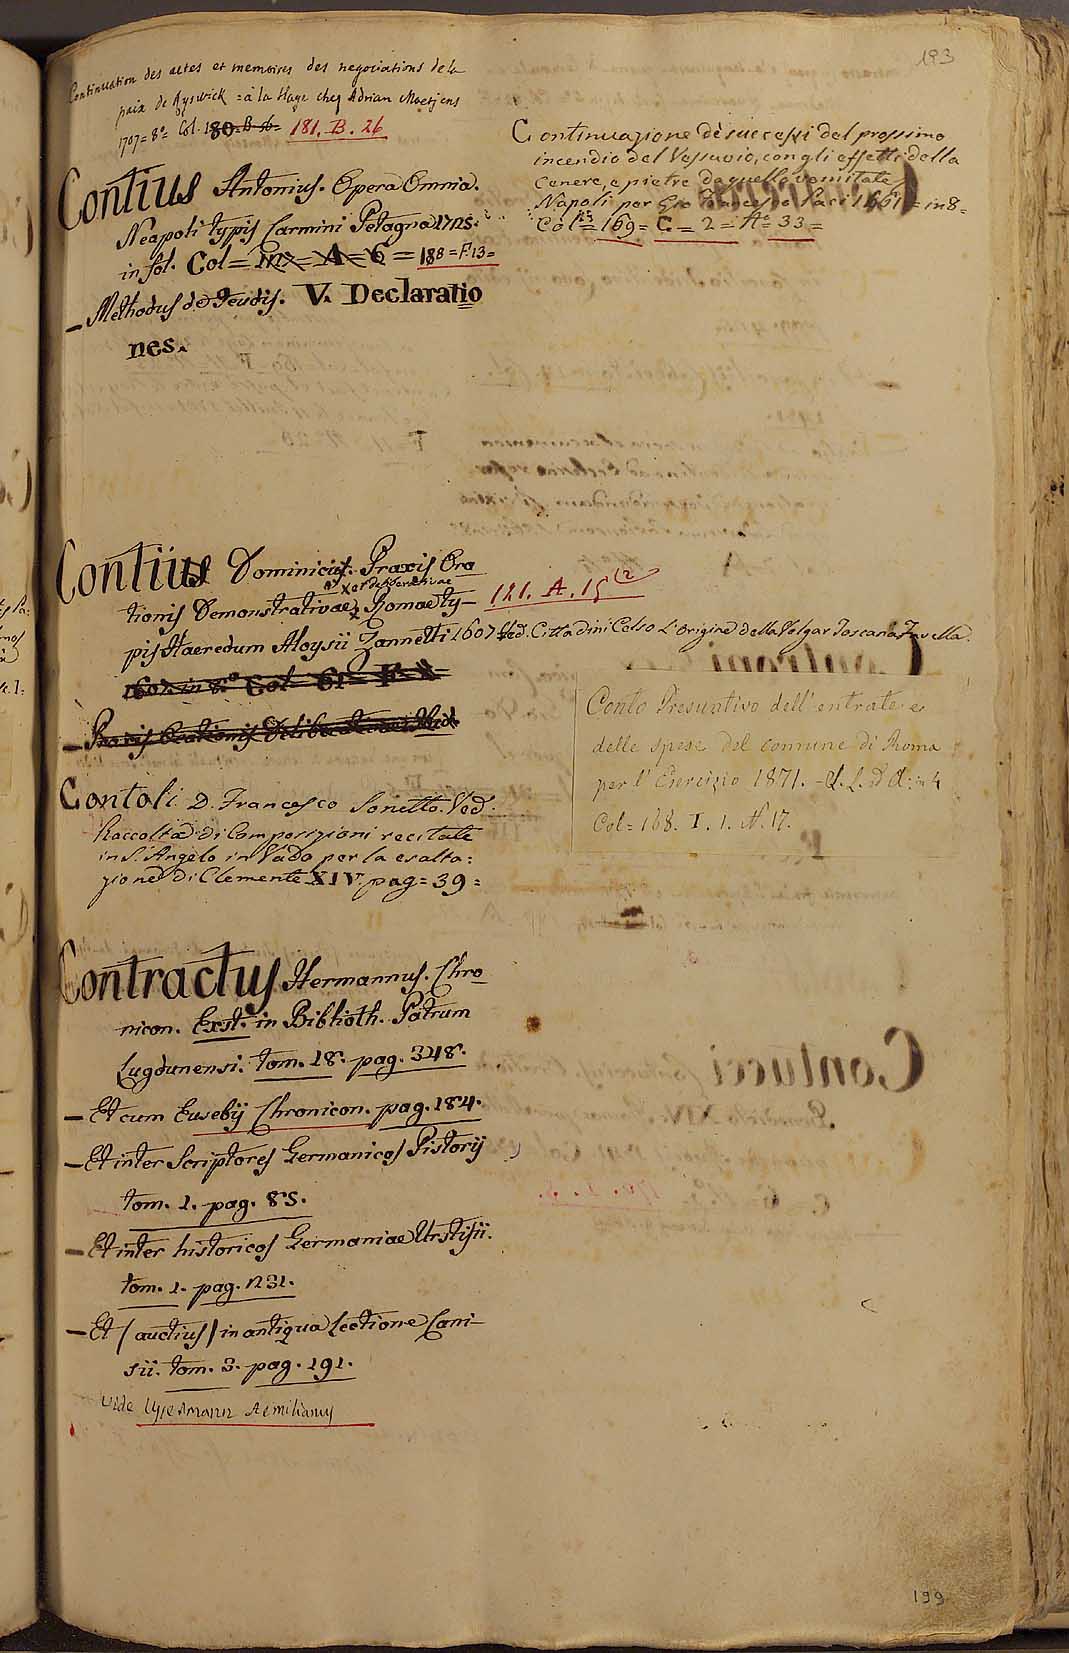 193
Continuation des actes et memoires des negociations de la
paix de Ryswick = a la Haye chez Adrian Moetjens
1707 = 8º Col. 180 = B = 181. B. 26
Contius Antonius. Opera Omnia.
Neapoli typis Carmini Petagna 1725.
in fol. Col = = A = 6 = 188 = F. 13 =
– Methodus de Feudis. V. Declaratio
nes.
Contius Dominicus. Praxis Ora
et deliberativae
tionis Demonstrativae Romae ty– 121. A. 15
pis Haeredum Aloysii Zannetti 1607
1607 in 8º Col = 61 = F.
– Praxis Orationis Deliberativae Ibid.
Contoli D. Francesco Sonetto. Ved.
Raccolta di Composizioni recitate
in S. Angelo in Vado per la esalta:
zione di Clemente XIV. pag = 39 =
Contractus Hermannus. Chro
nicon. Exst. in Biblioth. Patrum
Lugdunensi. tom. 18. pag. 348.
– Et cum Eusebij Chronicon. pag. 184.
– Et inter Scriptores Germanicos Pistorij
tom. 1. pag. 85.
– Et inter historicos Germaniae Urstisii.
tom. 1. pag. 231.
– Et (auctius) in antiqua Lectione Cani–
sii. tom. 3. pag. 191.
Vide Ussermann Aemilianus
Continuazione de successi del prossimo
incendio del Vesuvio, con gli effetti della
cenere, e pietre da quello vomitate
Napoli per Gio Francesco Paci 1661 = in 8 =
Col = 169 = C = 2 = Nº 33 =
Ved. Cittadini Celso L'Origine della Volgar Toscana Favella
Conto Presuntivo dell' entrate e
delle spese del comune di Roma
per l' Esercizio 1871. – in 4
Col = 168. I. 1. N. 17.
199